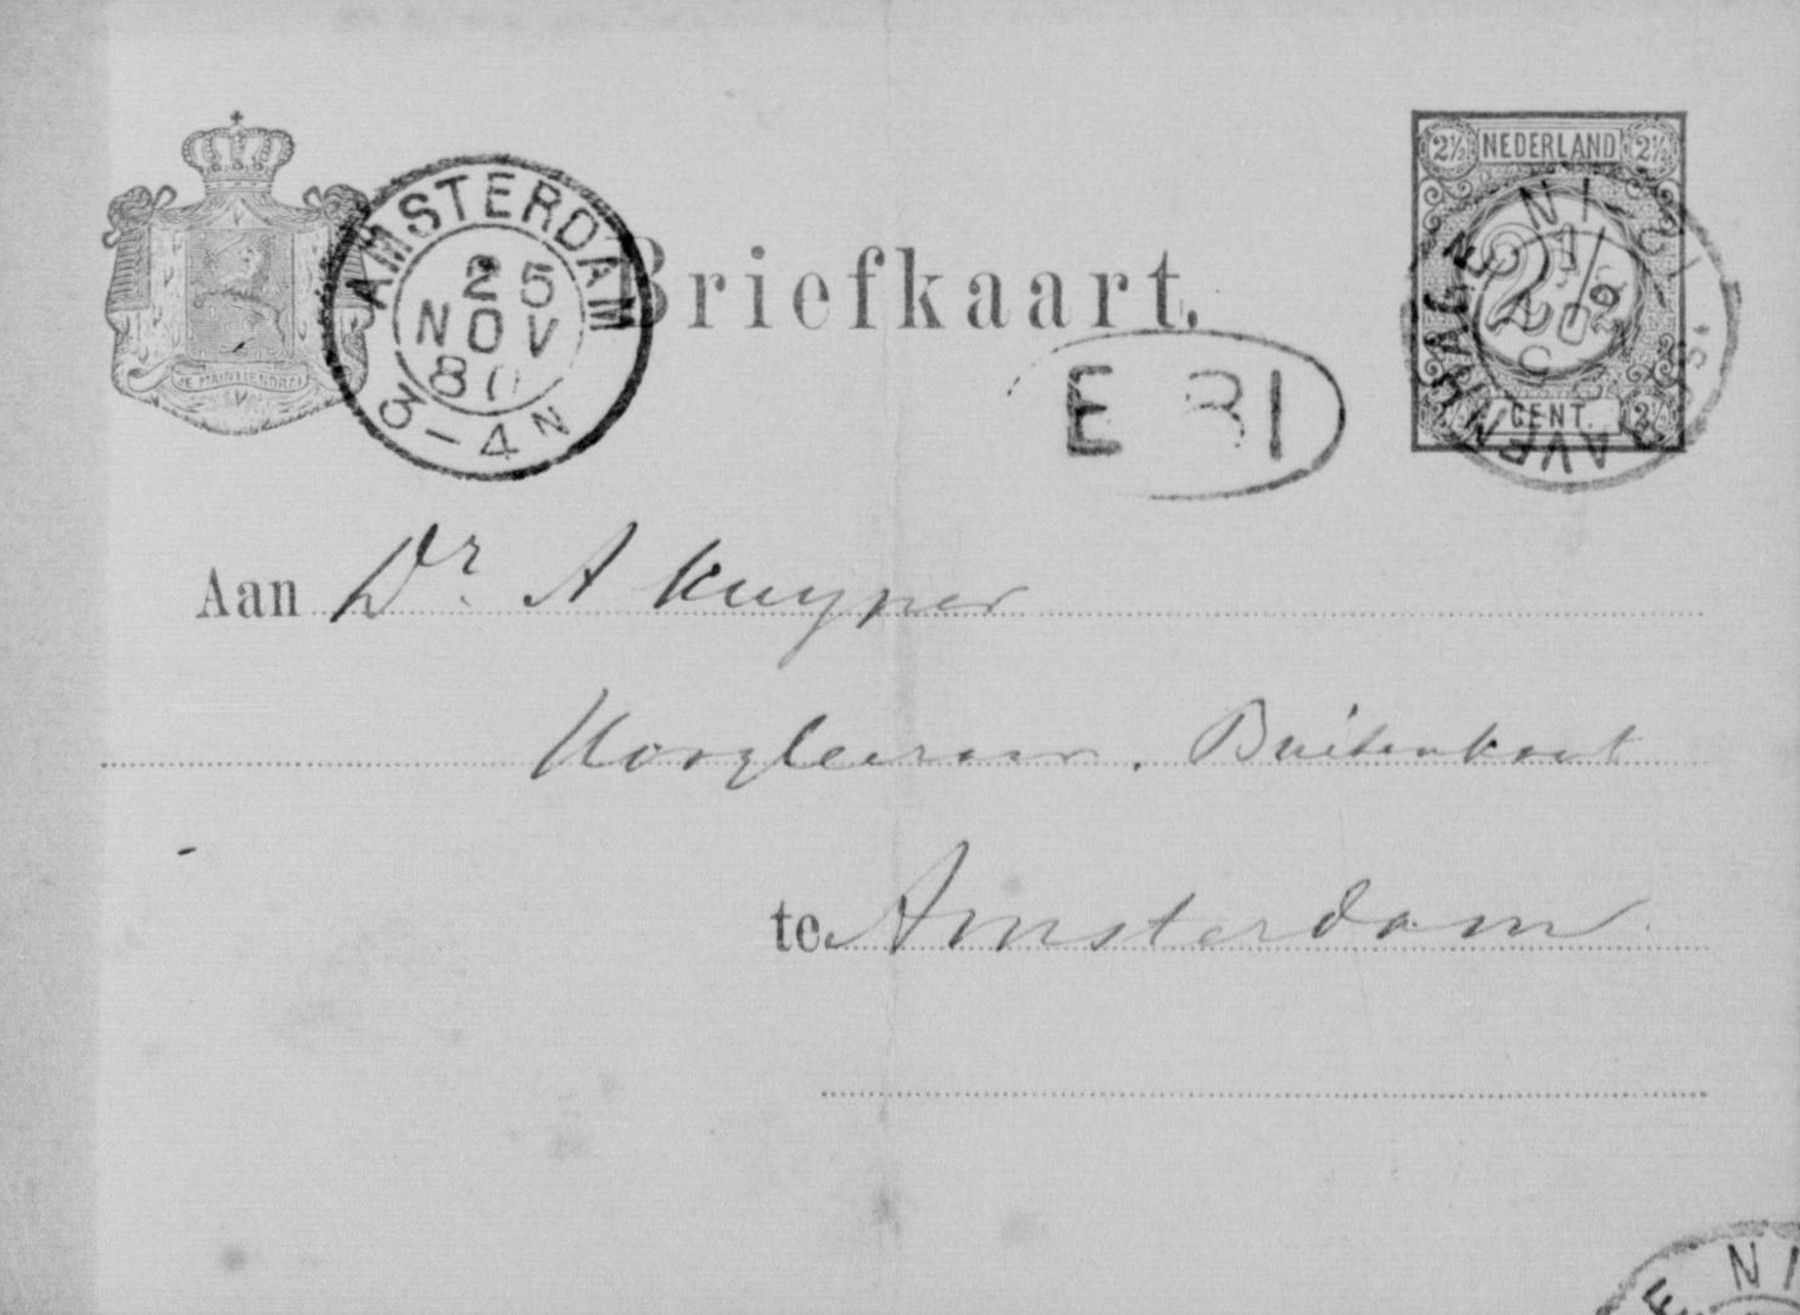 JE MAINTIENDRAI
AMSTERDAM
25
NOV
80
3-4N
Briefkaart.
E 31
2½ NEDERLAND 2½
2½
CENT. 2½
'S GRAVENHAGE
Aan Dr. A Kuyper
Hoogleeraar. Buitenkant
te Amsterdam
NI